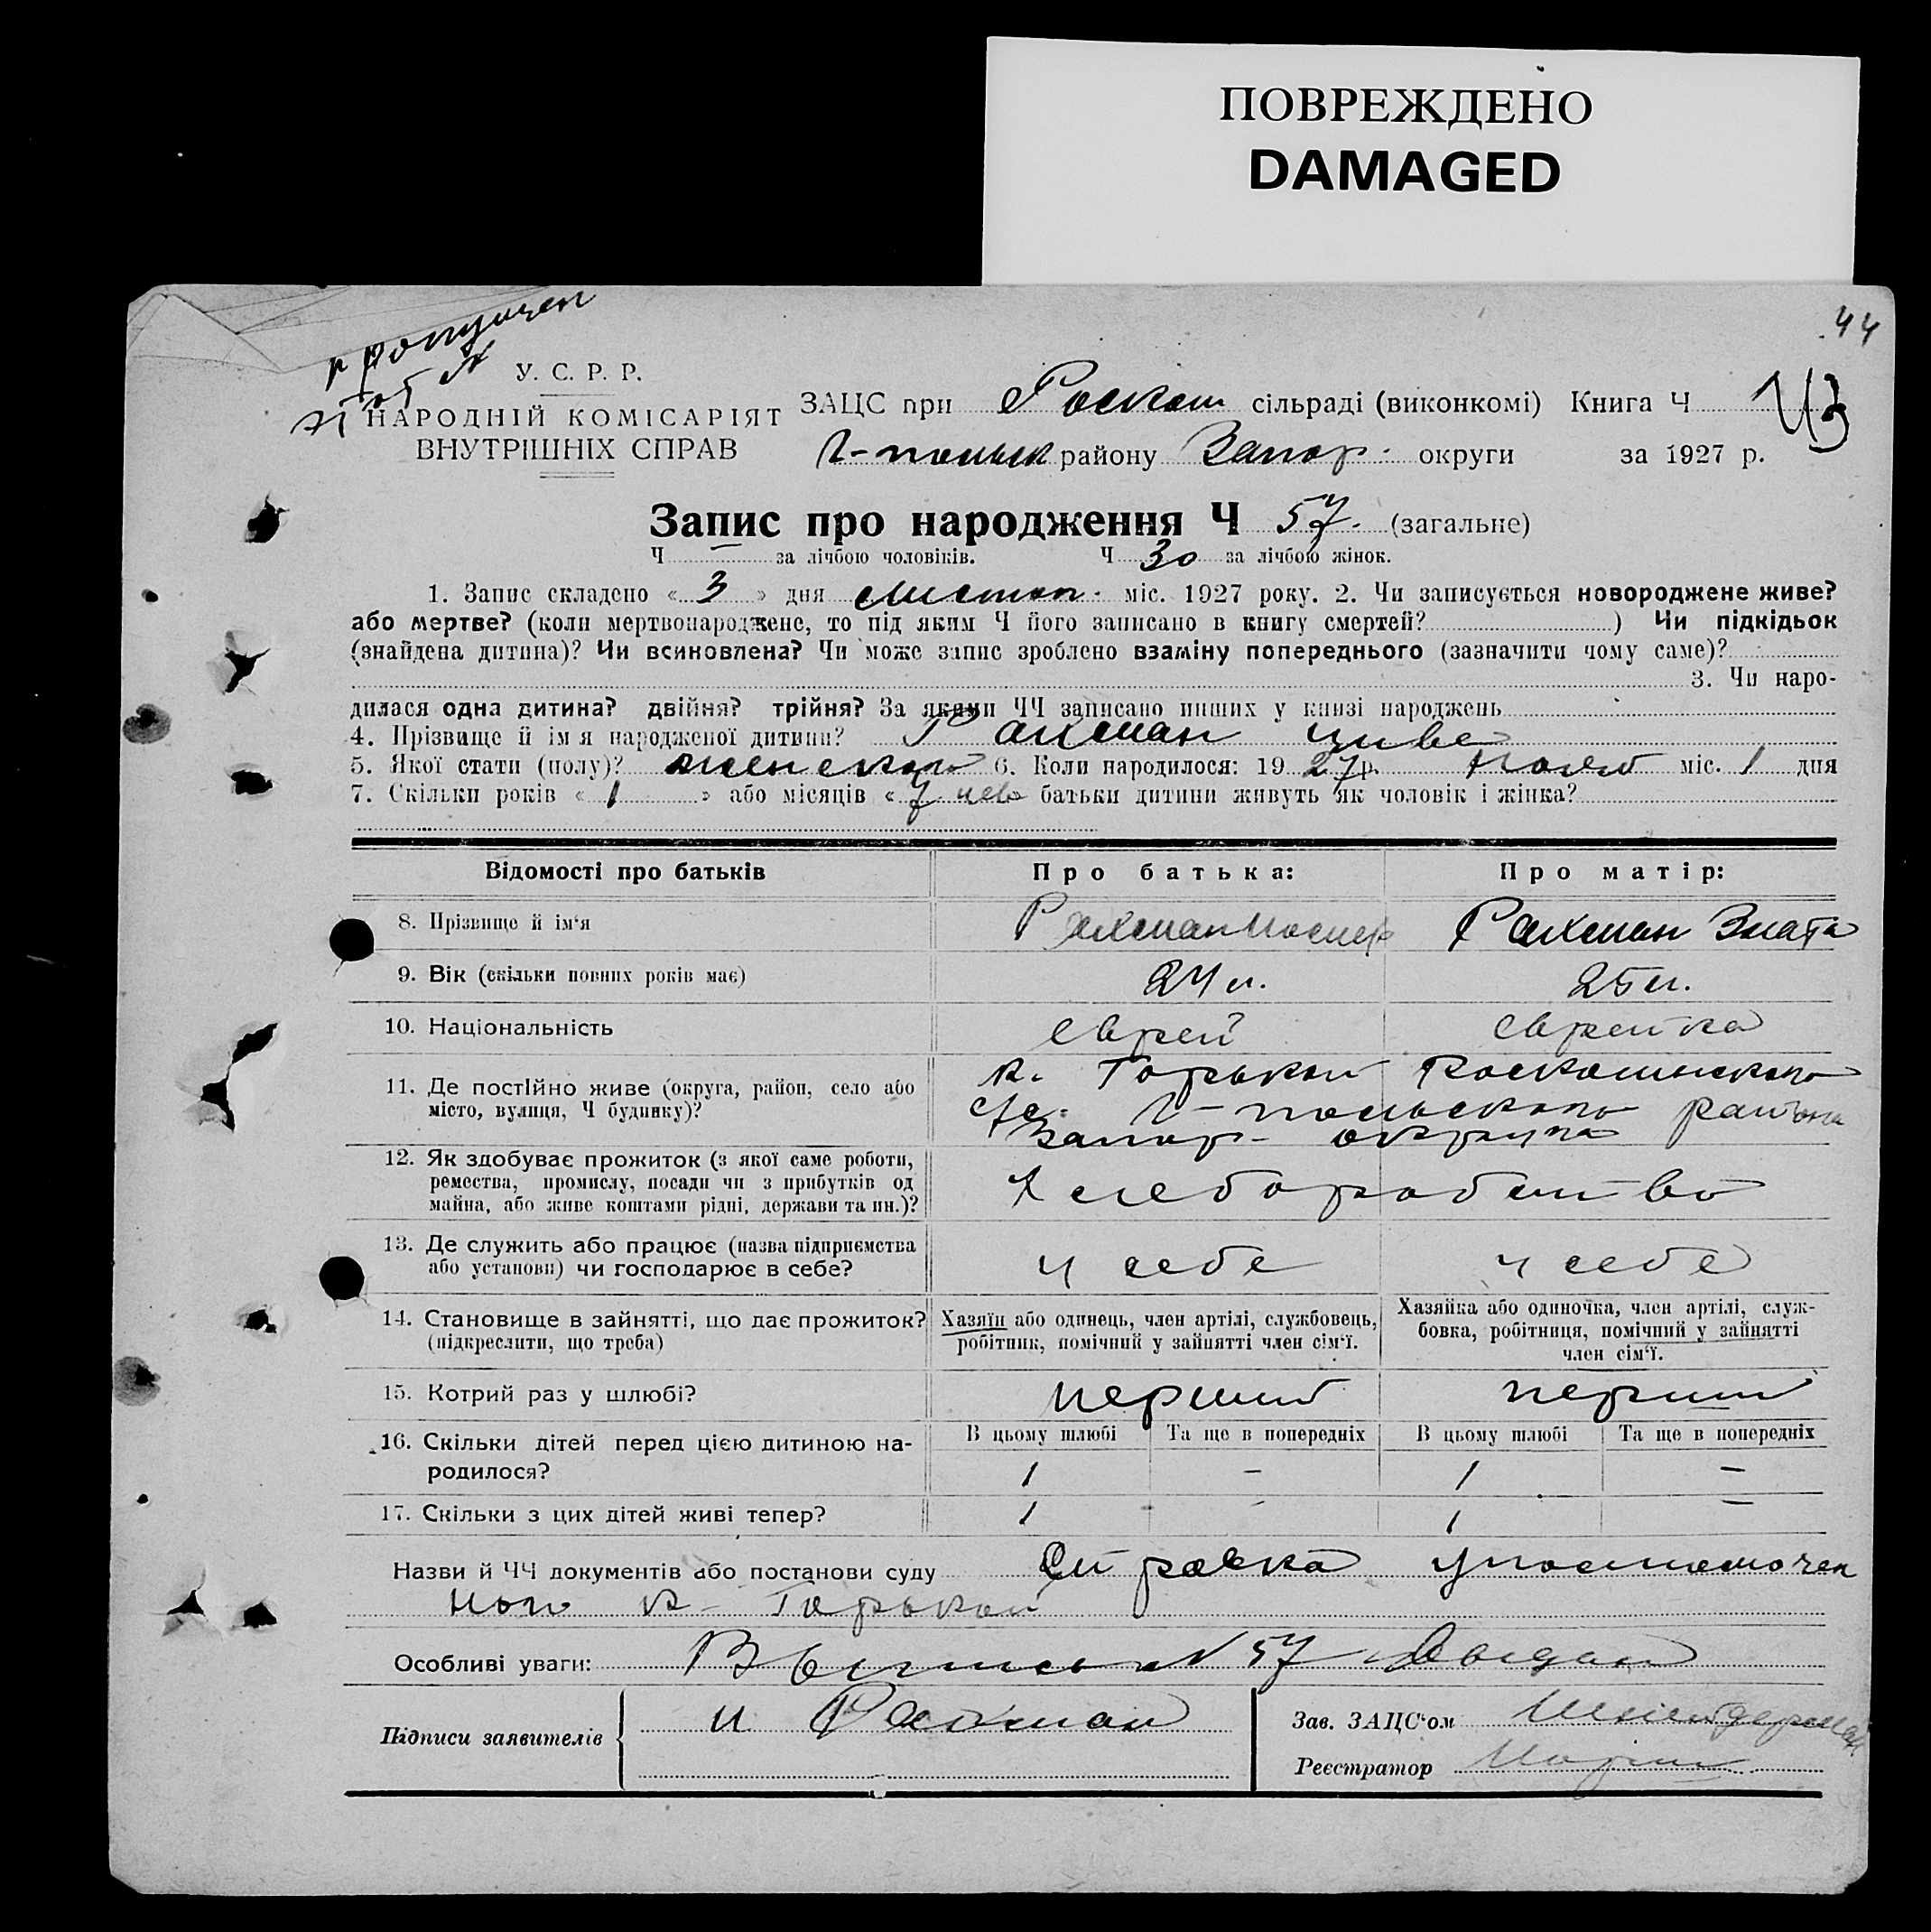 ПОВРЕЖДЕНО
DAMAGED
44
пропущен
У. С. Р. Р.
НАРОДНІЙ КОМІСАРІЯТ
ВНУТРІШНІХ СПРАВ
ЗАЦС при Роскош сільраді (виконкомі) Книга Ч
Г-польск району Запор. округи за 1927 р.
Запис про народження Ч 57. (загальне)
Ч — за лічбою чоловіків. Ч 30 за лічбою жінок.
1. Запис складено « 3 » дня Листоп. міс. 1927 року. 2. Чи записується новороджене живе?
або мертве? (коли мертвонароджене, то під яким Ч його записано в книгу смертей? ) Чи підкідьок
(знайдена дитина)? Чи всиновлена? Чи може запис зроблено взаміну попереднього (зазначити чому саме)?
3. Чи наро-
дилася одна дитина? двійня? трійня? За якими ЧЧ записано инших у книзі народжень
4. Прізвище й ім'я народженої дитини? Рахман Циве
5. Якої стати (полу)? женского 6. Коли народилося: 19 27 р. Нояб міс. 1 дня
7. Скільки років « 1 » або місяців « 7 мев батьки дитини живуть як чоловік і жінка?
Відомості про батьків Про батька: Про матір:
8. Прізвище й ім'я Рахман Иосиф Рахман Злата
9. Вік (скільки повних років має) 24 л. 25 л.
10. Національність еврей еврейка
11. Де постійно живе (округа, район, село або
місто, вулиця, Ч будинку)?
к. Горькой Роскошинского
с/с. Г-польского района
Запор- округа
12. Як здобуває прожиток (з якої саме роботи,
ремества, промислу, посади чи з прибутків од
майна, або живе коштами рідні, держави та ин.)?
Хлеборобство
13. Де служить або працює (назва підприємства
або установи) чи господарює в себе?
у себе у себе
14. Становище в зайнятті, що дає прожиток?
(підкреслити, що треба)
Хазяїн або одинець, член артілі, службовець,
робітник, помічний у зайнятті член сім'ї.
Хазяйка або одиночка, член артілі, служ-
бовка, робітниця, помічний у зайнятті
член сім'ї.
15. Котрий раз у шлюбі? перший перший
16. Скільки дітей перед цією дитиною на-
родилося?
В цьому шлюбі Та ще в попередніх В цьому шлюбі Та ще в попередніх
1 — 1 —
17. Скільки з цих дітей живі тепер? 1 1 —
Назви й ЧЧ документів або постанови суду Справка уполномочен
ного к- Горькой
Особливі уваги: Выпись N 57 выдан
Підписи заявителів и Рахман
Зав. ЗАЦС'ом
Реєстратор